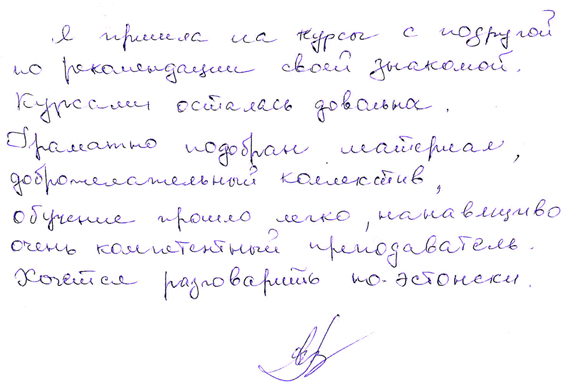 Я пришла на курсы с подругой
по рекомендации своей знакомой.
Курсами осталась довольна.
Граматно подобран материал,
доброжелательный коллектив,
обучение прошло легко, ненавящиво
очень компетентный преподаватель.
Хочется разговарить по-эстонски.